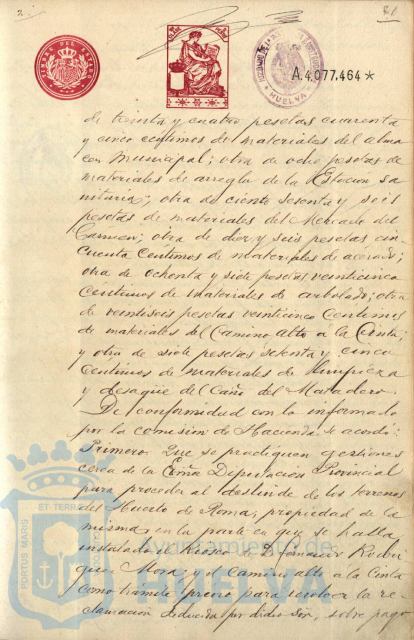 2.
TIMBRE DEL ESTADO
A.4.077.464 *
HUELVA
de treinta y cuatro pesetas cuarenta
y cinco centimos de materiales del alma
cen Municipal; otra de ocho pesetas de
materiales de arreglo de la Estacion sa
nitaria; otra de ciento sesenta y seis
pesetas de materiales del Mercado del
Carmen; otra de diez y seis pesetas cin
cuenta centimos de materiales de acerado;
otra de ochenta y siete pesetas veinticinco
centimos de materiales de arbolado; otra
de veintiseis pesetas veinticinco centimos
de materiales del Camino alto á la Cinta;
y otra de siete pesetas setenta y cinco
centimos de materiales de limpieza
y desagüe del Caño del Matadero.
De conformidad con lo informado
por la comision de Hacienda se acordó:
Primero. Que se practiquen gestiones
cerca de la Diputacion Provincial
para proceder al deslinde de los terrenos
del Huerto de Roma, propiedad de la
misma, en la parte en que se halla
instalado el Kiosco de
Mora, y el camino alto a la Cinta
como tramite previo para resolver la re
clamacion deducida por dicho Sor, sobre pago
ET TERRAE
PORTUS MARIS
Ayuntamiento de
HUELVA